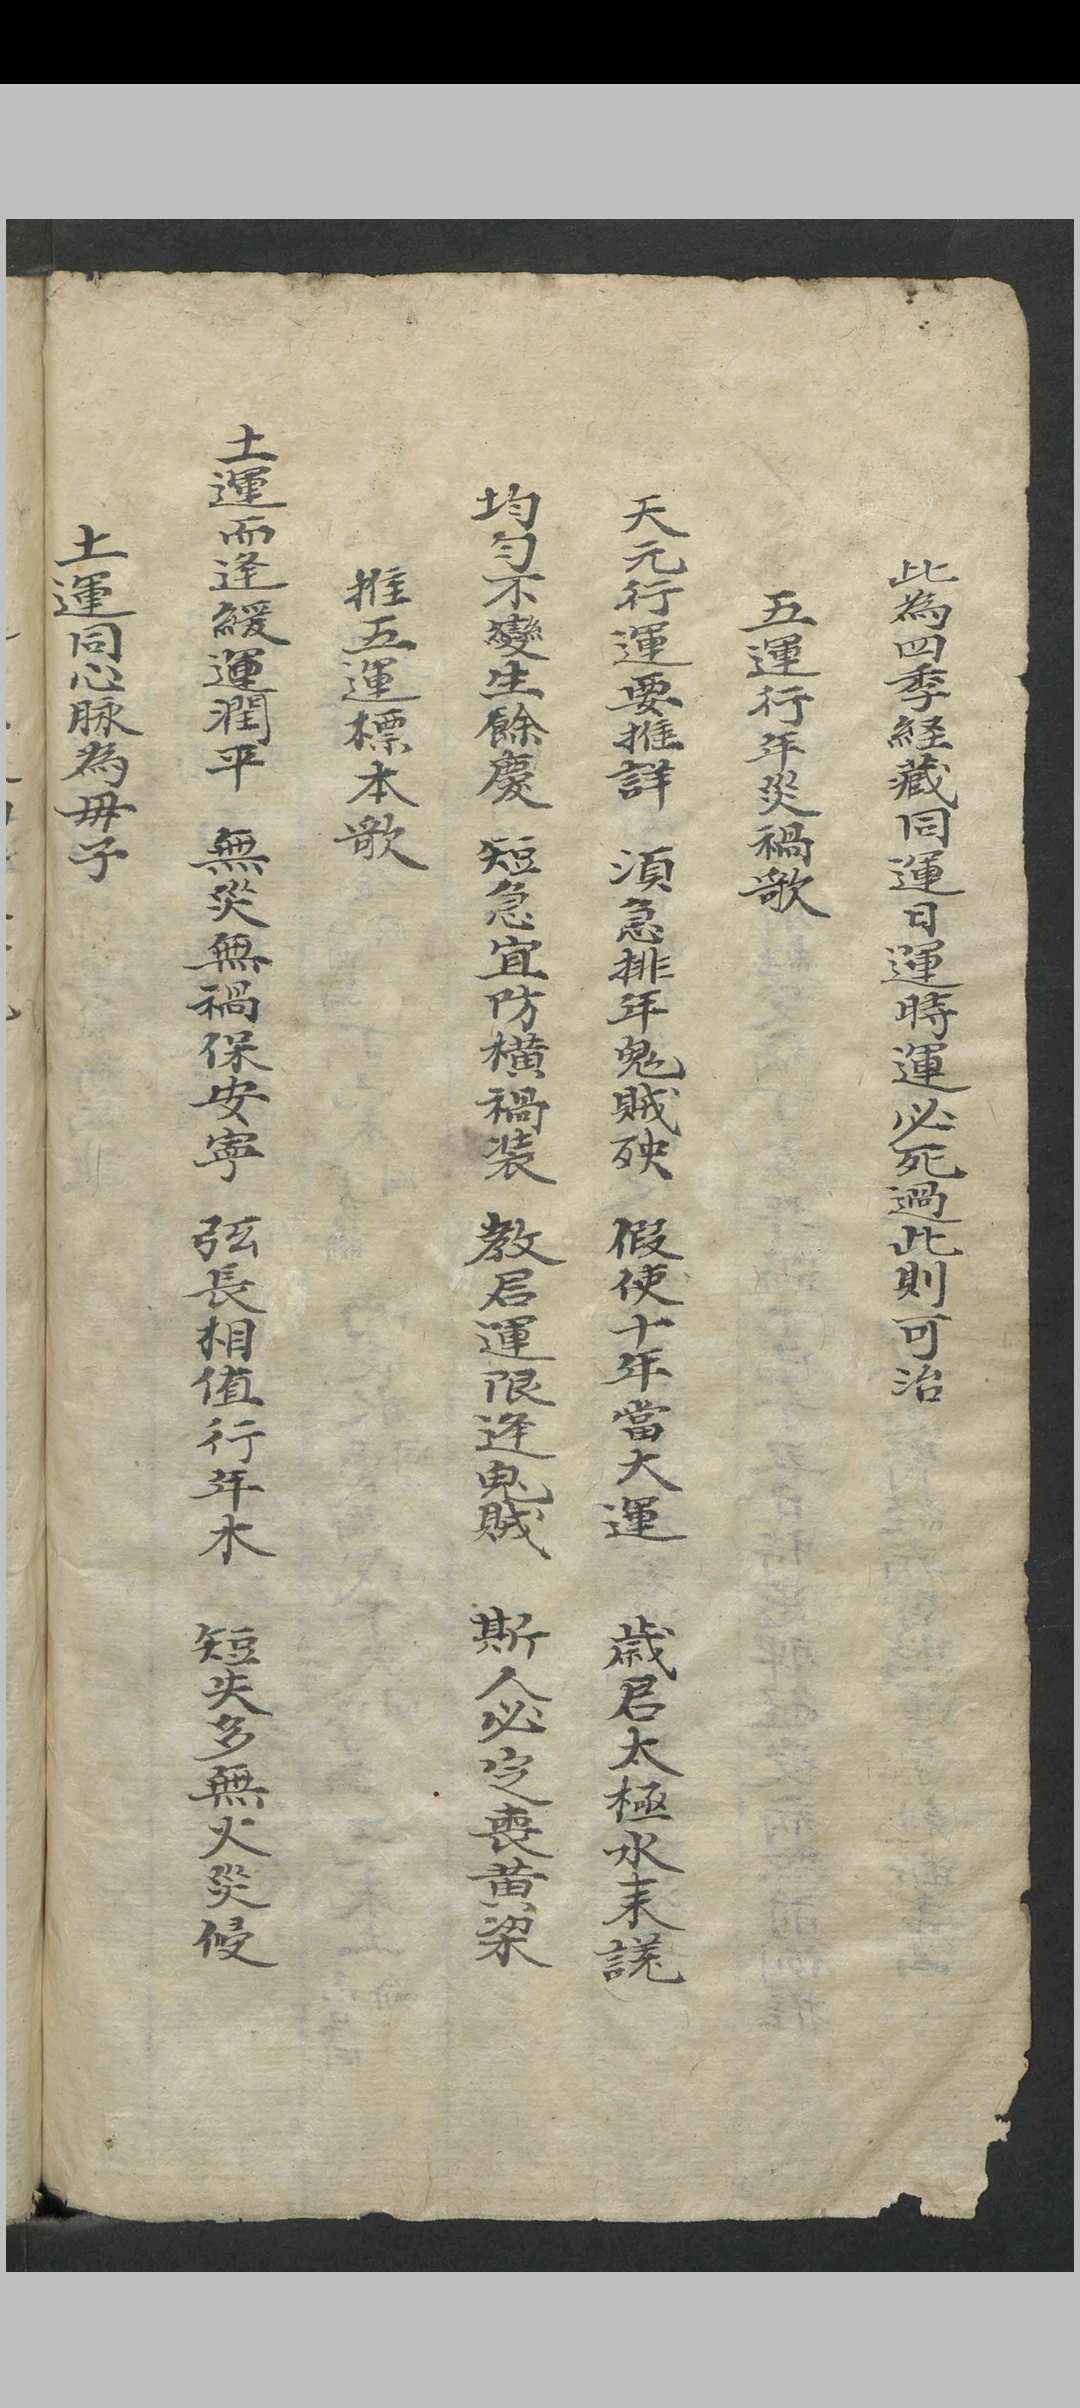 此為四季経藏同運日運時運必死過此則可治
五運行年災禍歌
天元行運要推詳 須急排年鬼賊殃 假使十年當大運 歳君太極水末議
均匀不變生餘慶 短急宜防橫禍装 教君運限逢鬼賊 斯人必定喪黄梁
推五運標本歌
土運而逢緩運潤平 無災無禍保安寧 弦長相值行年木 短失多無火災侵
土運同心脉為毋子